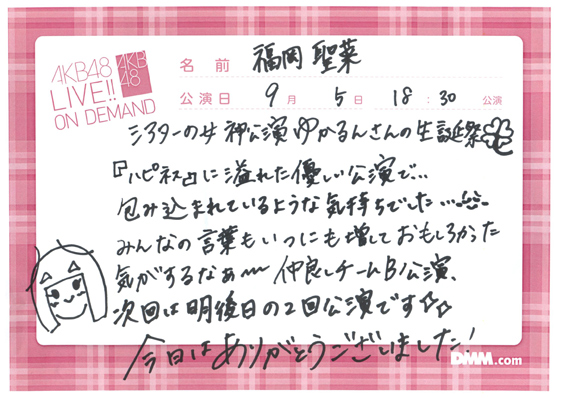 AKB48
LIVE!!
ON DEMAND
AKB
48
名前 福岡聖菜
公演日 9月 5日 18:30 公演
シアターの女神公演ゆかるんさんの生誕祭
『ハピネス』に溢れた優しい公演で…
包み込まれているような気持ちでした…
みんなの言葉もいつにも増しておもしろかった
気がするなぁ〜 仲良しチームB公演、
次回は明後日の2回公演です☆☆
今日はありがとうございました!
DMM.com